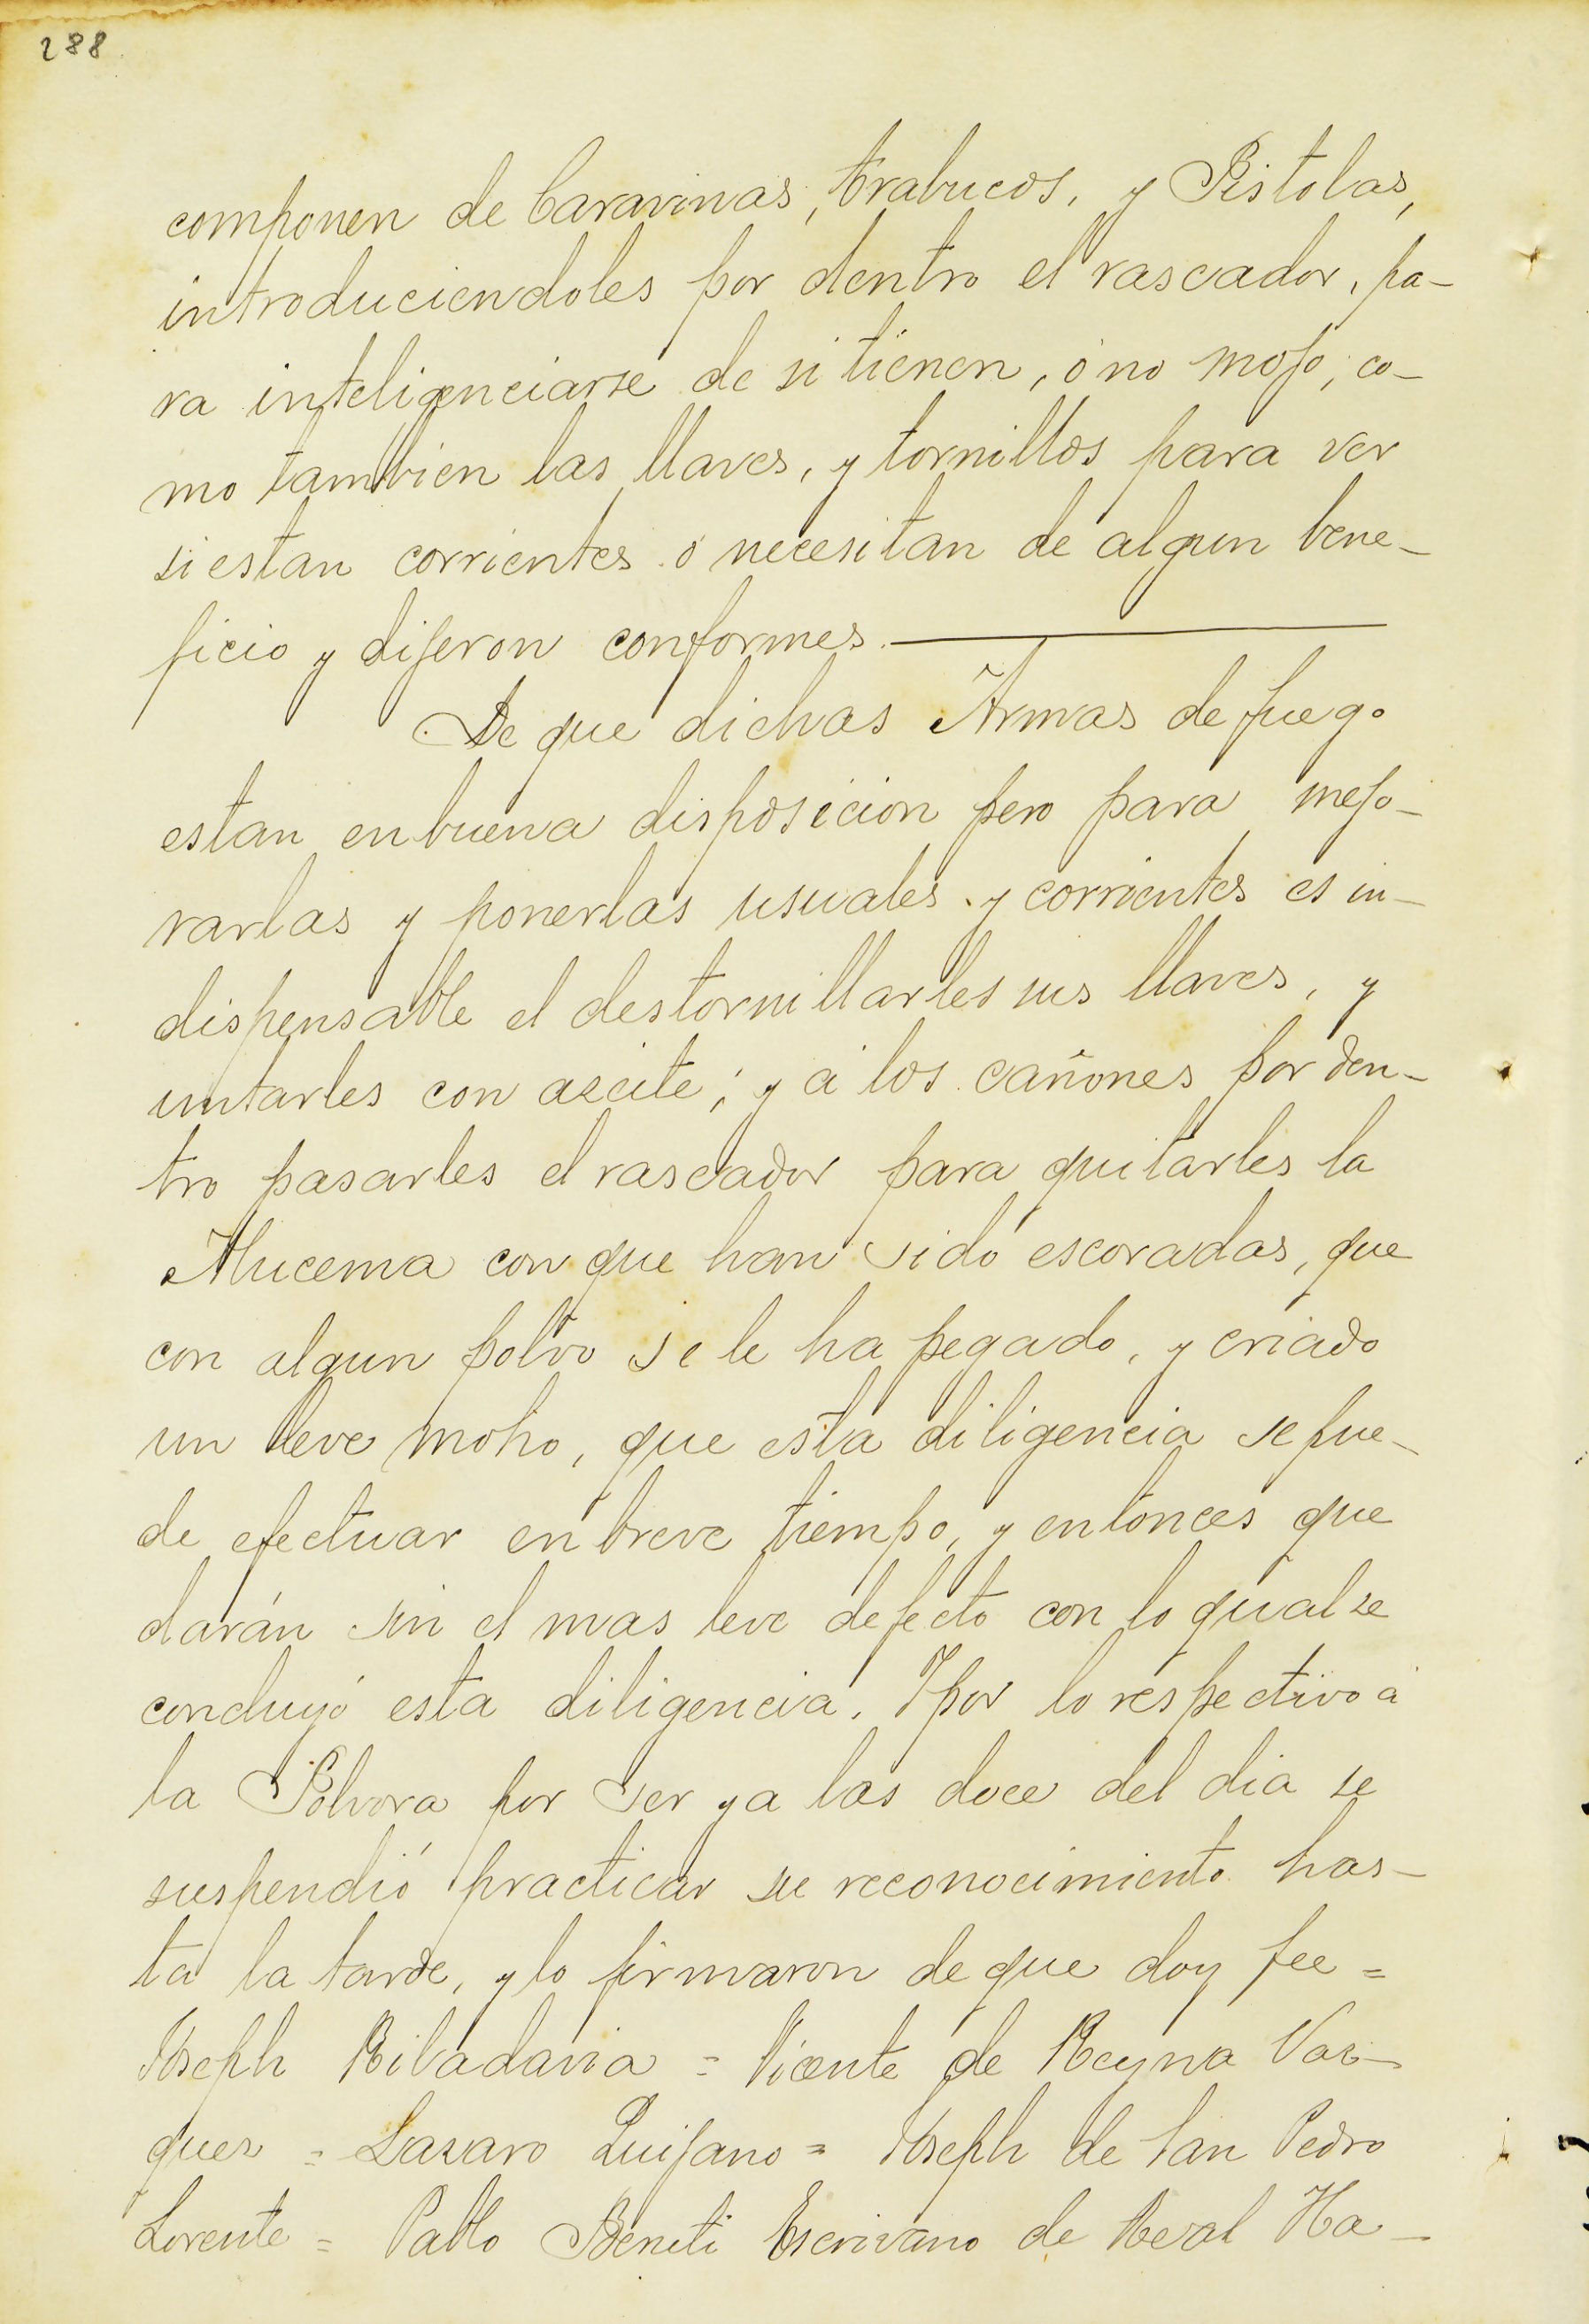 288
componen de Caravinas, trabucos, y Pistolas,
introduciendoles por dentro el rascador, pa-
ra inteligenciarse de si tienen, ó no mojo, co-
mo tambien las llaves, y tornillos para ver
si estan corrientes ó necesitan de algun bene-
ficio y dijeron conformes.
De que dichas Armas de fuego
estan en buena disposicion pero para mejo-
rarlas y ponerlas usuales y corrientes es in-
dispensable el destornillarles sus llaves, y
untarles con azeite; y á los cañones por den-
tro pasarles el rascador para quitarles la
Alucema con que han sido escoradas, que
con algun polvo se le ha pegado, y criado
un leve moho, que esta diligencia se pue-
de efectuar en breve tiempo, y entonces que
darán sin el mas leve defecto con lo qual se
concluyó esta diligencia. Y por lo respectivo á
la Pólvora por ser ya las doce del dia se
suspendió practicar su reconocimiento has-
ta la tarde, y lo firmaron de que doy fee =
Joseph Ribadavia = Vicente de Reyna Vaz-
quez = Lazaro Quijano = Joseph de San Pedro
Lorente = Pablo Beniti Escrivano de Real Ha-